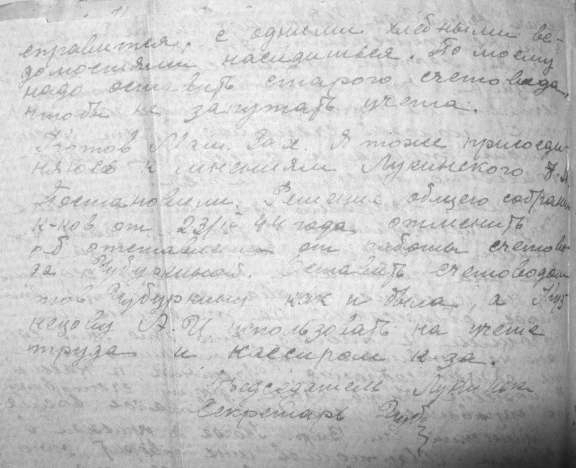 справится, с одними хлебными ве-
домостями насидишься. По моему
надо оставить старого счетовода,
чтобы не запутать учета.
Котов Мат. Я тоже присоеди-
няюсь к мнениям Лукинского
Постановили. Решение общего собрания
к-ков от 23/ 44 года отменить
об отставлении от работы счетово-
да Чубуркиной. Оставить счетоводом
тов Чубуркину как и была, а
нецову А.И использовать на учете
труда и кассиром к-за.
Председатель Лукинск
Секретарь Чуб